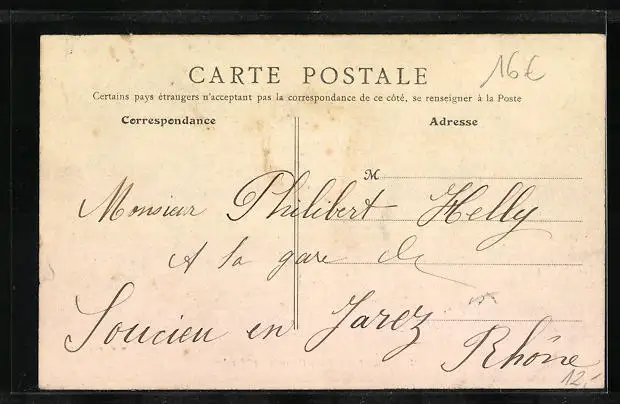 16€
CARTE POSTALE
Certains pays étrangers n'acceptant pas la correspondance de ce côté, se renseigner à la Poste
Correspondance
Adresse
M
Monsieur Philibert Helly
A la gare de
Soucieu en Jarez
Rhône
12,-